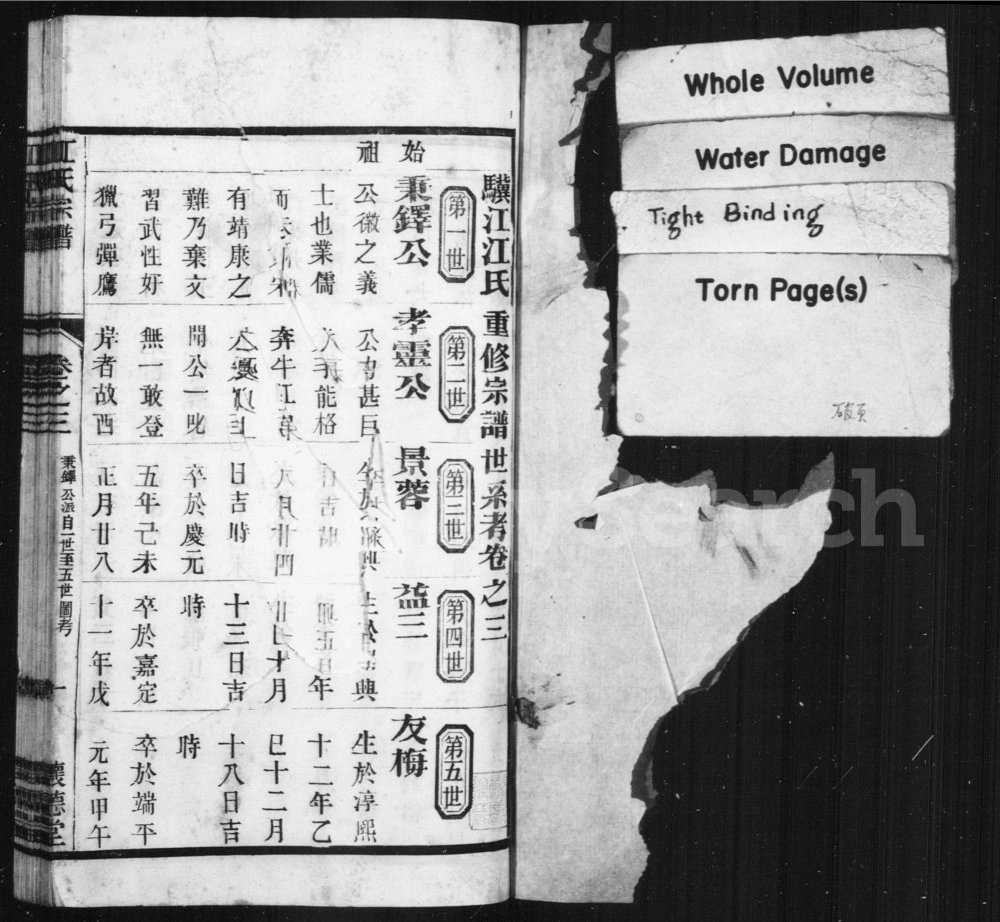 驥江江氏重修宗譜世系考卷之三
第一世
始祖
秉鐸公
公徽之義
士也業儒
有靖康之
難乃棄文
習武性好
獵弓彈鷹
第二世
孝靈公
公力甚巨
能格
奔牛江
聞公一叱
無一敢登
岸者故西
第三世
景蓉
日吉時
卒於慶元
五年己未
正月廿八
第四世
益三
年
十月
十三日吉
時
卒於嘉定
十一年戊
第五世
友梅
生於淳熙
十二年乙
巳十二月
十八日吉
時
卒於端平
元年甲午
江氏宗譜
卷之三
秉鐸公派自一世至五世圖考
一
懷德堂
Whole Volume
Water Damage
Tight Binding
Torn Page(s)
破頁